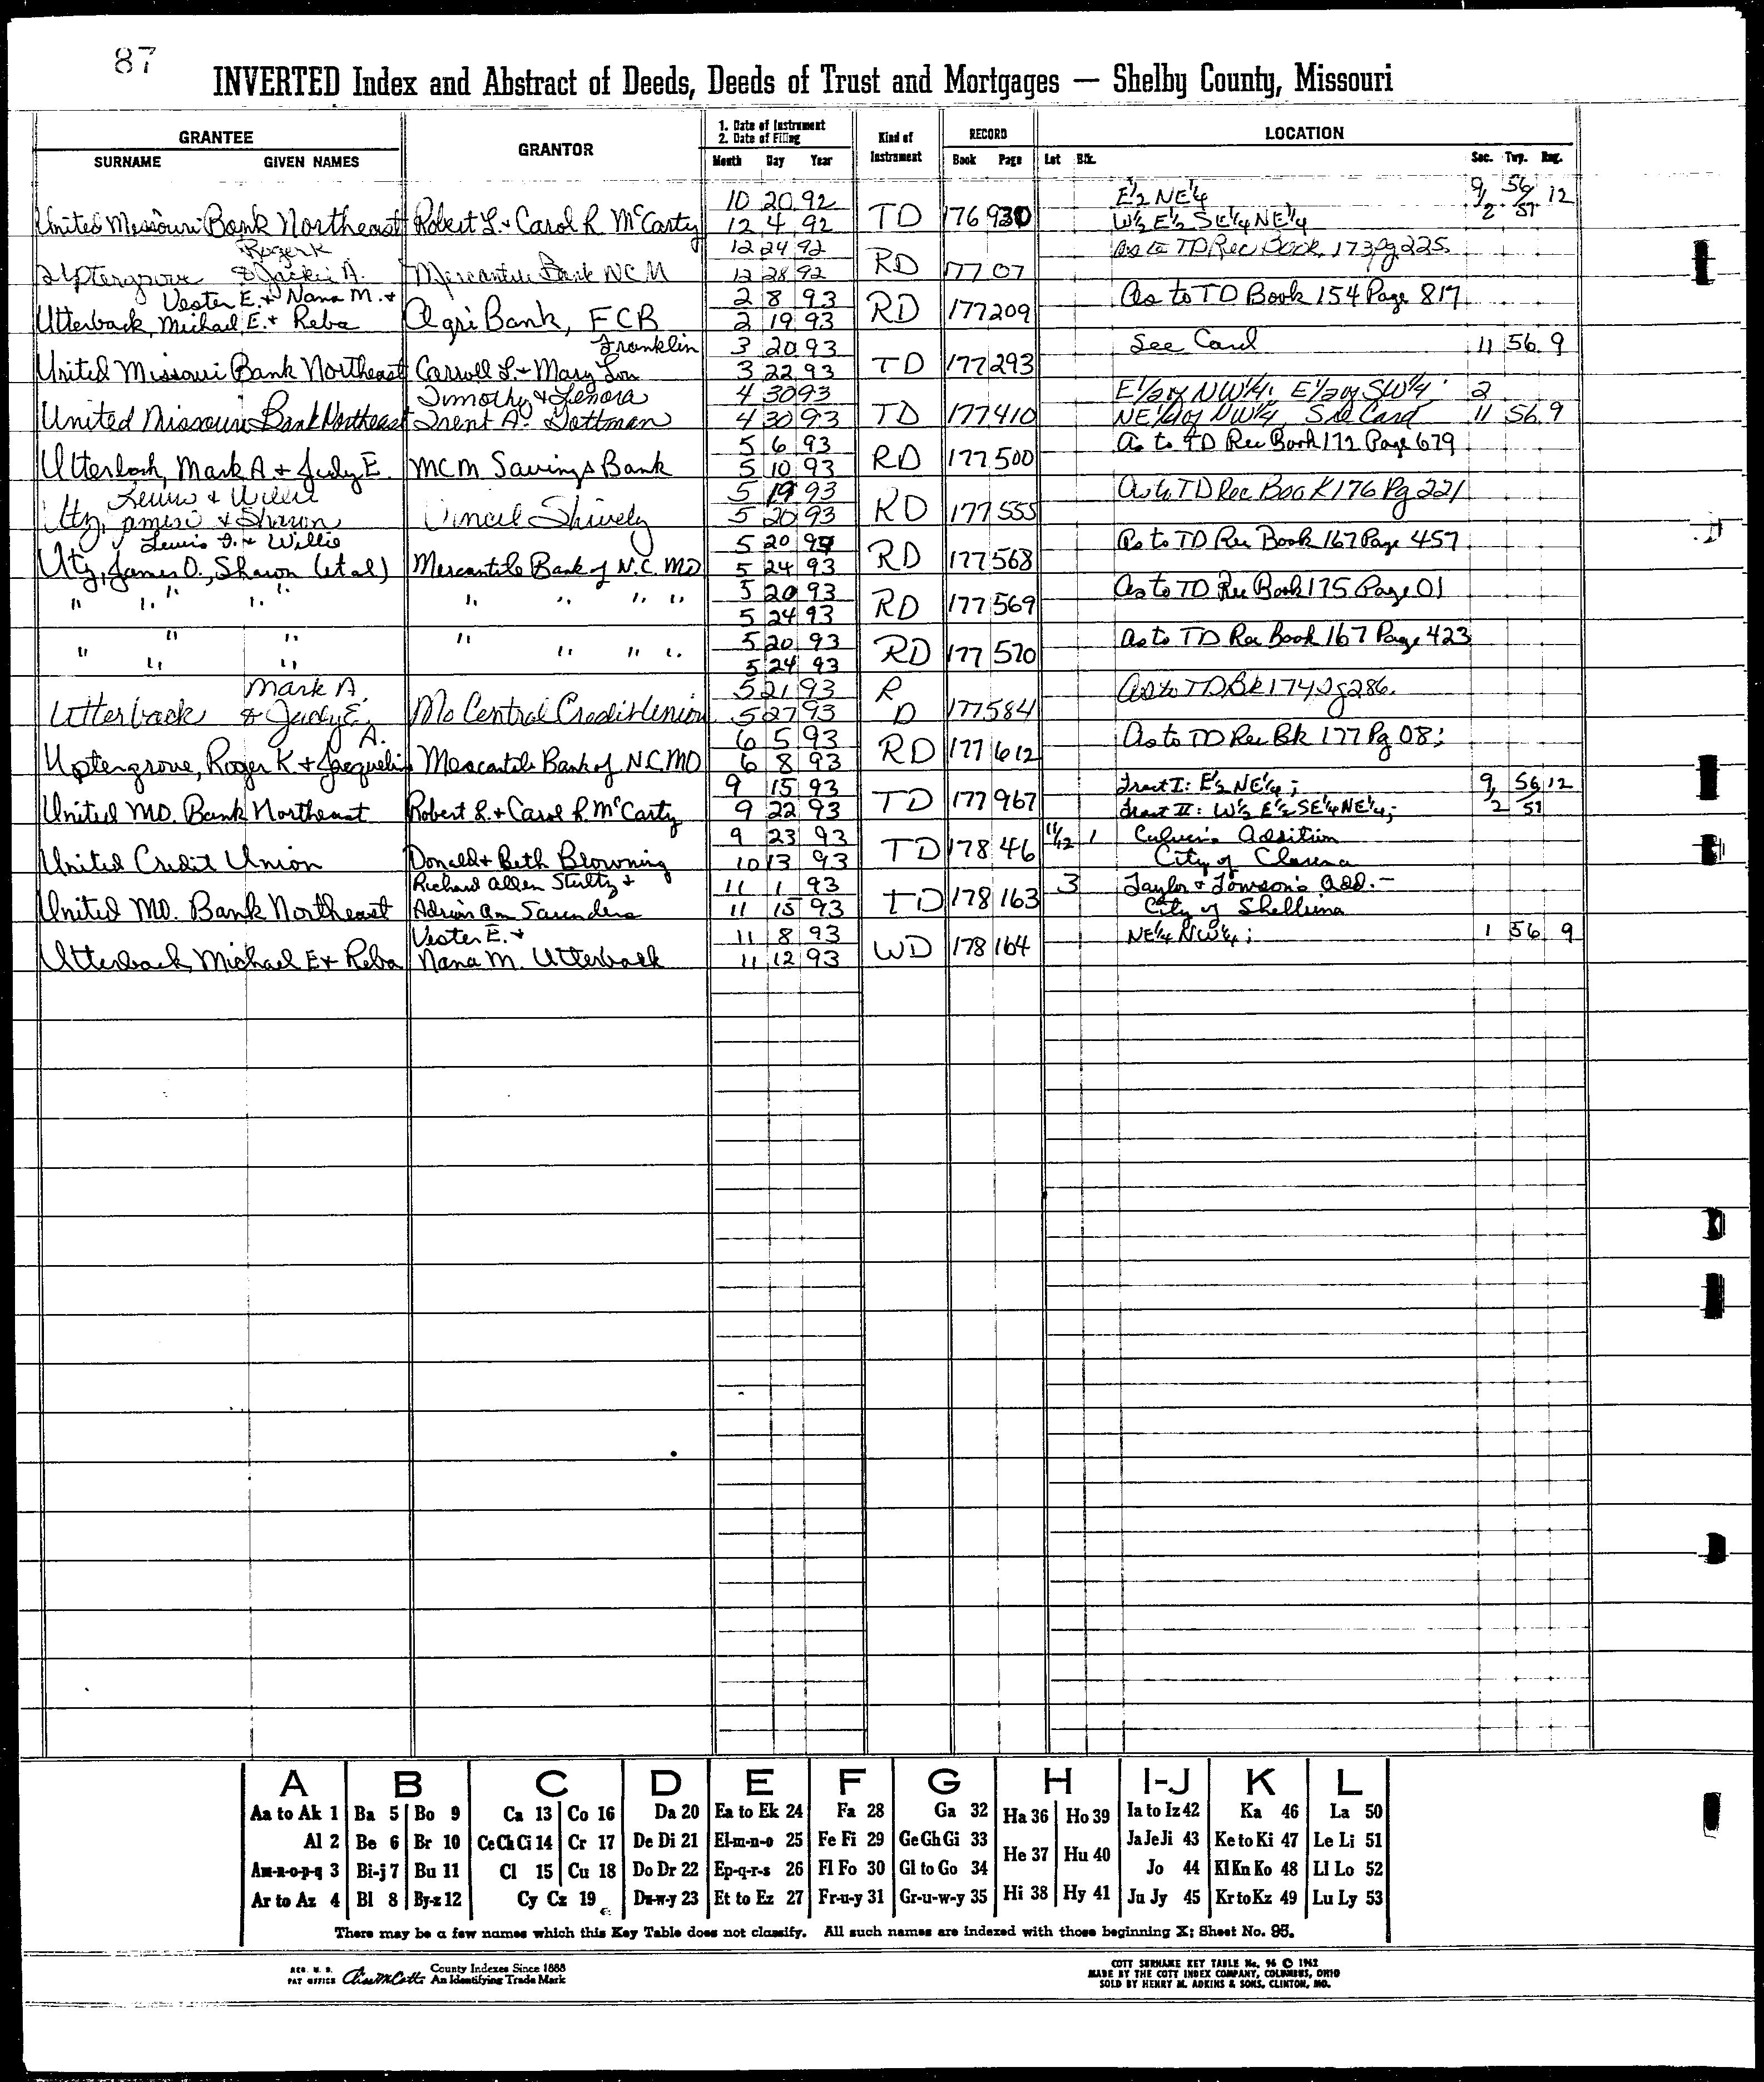 87
INVERTED Index and Abstract of Deeds, Deeds of Trust and Mortgages — Shelby County, Missouri
GRANTEE GRANTOR 1. Date of Instrument 2. Date of Filing Kind of Instrument RECORD LOCATION
SURNAME GIVEN NAMES Month Day Year Book Page Lot Blk. Sec. Twp. Rng.
10 20 92 E½ NE¼ 9, 56, 12
United Missouri Bank Northeast Robert L. + Carol R. McCarty 12 4 92 TD 176 930 W½ E½ SE¼ NE¼ 2 57
Roger K 12 24 92 As to TD Rec Book 173 Pg 225
Uptergrove & Jackie A. Mercantile Bank NCM 12 28 92 RD 177 07
Vester E. + Nana M. + 2 8 93 As to TD Book 154 Page 817
Utterback, Michael E. + Reba Agri Bank, FCB 2 19 93 RD 177 209
Franklin 3 20 93 See Card 11 56 9
United Missouri Bank Northeast Carroll L. + Mary Lou 3 22 93 TD 177 293
Timothy & Lenora 4 30 93 E1/2 of NW1/4; E1/2 of SW1/4; 2
United Missouri Bank Northeast Trent A. Gottman 4 30 93 TD 177 410 NE1/4 of NW1/4, See Card 11 56 9
5 6 93 As to TD Rec Book 172 Page 679
Utterback, Mark A. + Judy E. MCM Savings Bank 5 10 93 RD 177 500
Lewis & Willie 5 19 93 As to TD Rec Book 176 Pg 221
Utz, James & Sharon Shively 5 20 93 RD 177 555
Lewis D. + Willie 5 20 93 As to TD Rec Book 167 Page 457
Utz, James O., Sharon (et al) Mercantile Bank of N.C. MO 5 24 93 RD 177 568
" " " " " " " " 5 20 93 As to TD Rec Book 175 Page 01
5 24 93 RD 177 569
" " " 5 20 93 As to TD Rec Book 167 Page 423
" " " " " " 5 24 93 RD 177 570
Mark A. 5 21 93 As to TD Bk 174 Pg 286.
Utterback & Judy E. Mo Central Credit Union 5 27 93 RD 177 584
A. 6 5 93 As to TD Rec Bk 177 Pg 08;
Uptergrove, Roger K. + Jacqueline Mercantile Bank of N.C. MO 6 8 93 RD 177 612
9 15 93 Tract I: E½ NE¼; 9, 56, 12
United MO. Bank Northeast Robert L. + Carol R. McCarty 9 22 93 TD 177 967 Tract II: W½ E½ SE¼ NE¼; 2 57
9 23 93 11/12 1 Culver's Addition
United Credit Union Donald + Beth Browning 10 13 93 TD 178 46 City of Clarence
Richard Allen Stultz + 11 1 93 3 Taylor & Towson's Add. -
United MO. Bank Northeast Adrian Ann Saunders 11 15 93 TD 178 163 City of Shelbina
Vester E. + 11 8 93 NE¼ NW¼; 1 56 9
Utterback, Michael E + Reba Nana M. Utterback 11 12 93 WD 178 164
A B C D E F G H I-J K L
Aa to Ak 1 Ba 5 Bo 9 Ca 13 Co 16 Da 20 Ea to Ek 24 Fa 28 Ga 32 Ha 36 Ho 39 Ia to Iz 42 Ka 46 La 50
Al 2 Be 6 Br 10 Ce Ch Ci 14 Cr 17 De Di 21 El-m-n-o 25 Fe Fi 29 Ge Gh Gi 33 He 37 Hu 40 Ja Je Ji 43 Ke to Ki 47 Le Li 51
Am-n-o-p-q 3 Bi-j 7 Bu 11 Cl 15 Cu 18 Do Dr 22 Ep-q-r-s 26 Fl Fo 30 Gl to Go 34 Jo 44 Kl Kn Ko 48 Ll Lo 52
Ar to Az 4 Bl 8 By-z 12 Cy Cz 19 Du-w-y 23 Et to Ez 27 Fr-u-y 31 Gr-u-w-y 35 Hi 38 Hy 41 Ju Jy 45 Kr to Kz 49 Lu Ly 53
There may be a few names which this Key Table does not classify. All such names are indexed with those beginning X; Sheet No. 95.
REG. U. S. PAT OFFICE County Indexes Since 1888 An Identifying Trade Mark
COTT SURNAME KEY TABLE No. 96 © 1962
MADE BY THE COTT INDEX COMPANY, COLUMBUS, OHIO
SOLD BY HENRY M. ADKINS & SONS, CLINTON, MO.